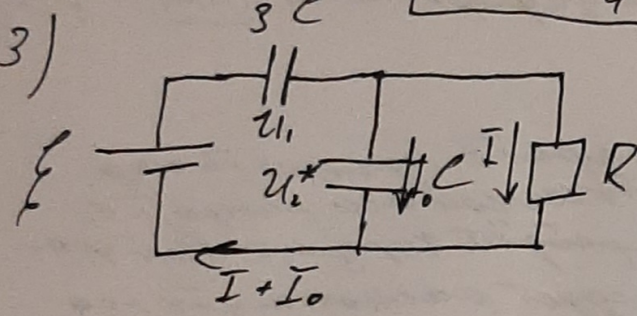 3)
3C
ℰ
U₁
U₂*
I₀
C
I
R
I + I₀